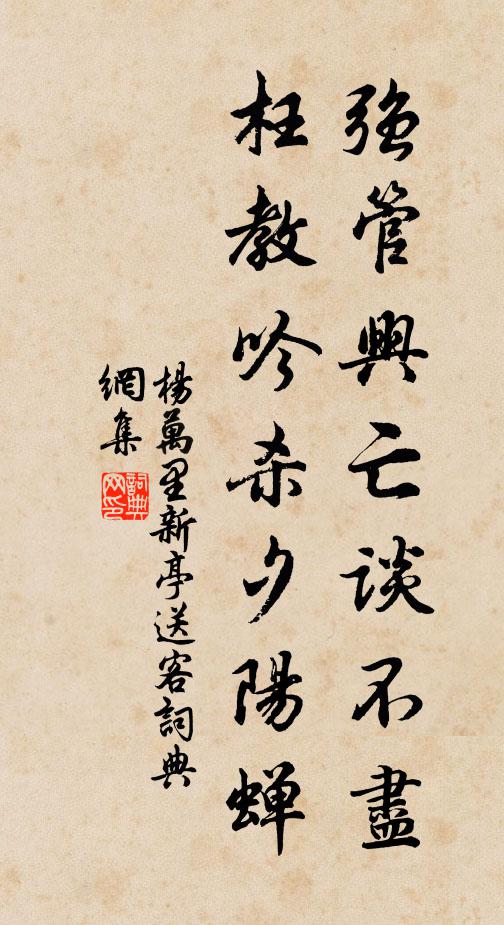 强管興亡談不盡
枉教吟杀夕陽蝉
楊萬里新亭送客詞典
網集
詞典
网印